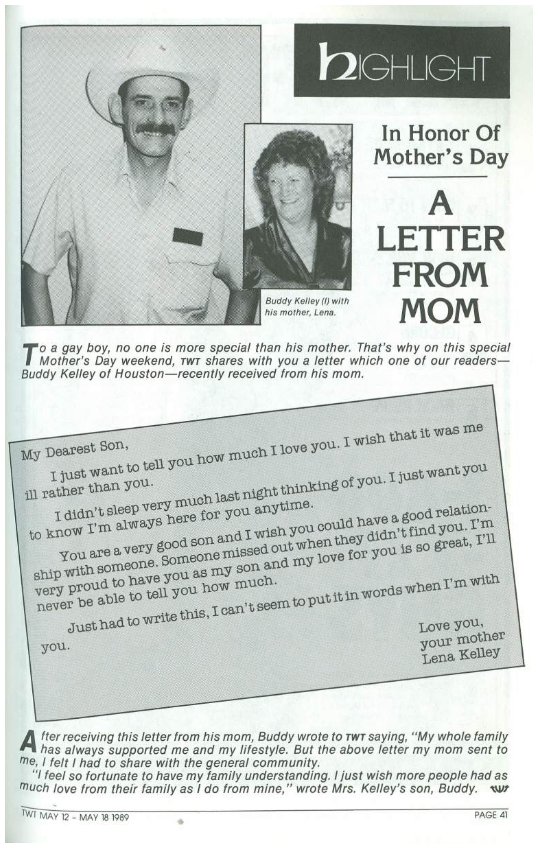 HIGHLIGHT
In Honor Of
Mother's Day
A
LETTER
FROM
MOM
Buddy Kelley (l) with
his mother, Lena.
To a gay boy, no one is more special than his mother. That's why on this special
Mother's Day weekend, TWT shares with you a letter which one of our readers—
Buddy Kelley of Houston—recently received from his mom.
My Dearest Son,
I just want to tell you how much I love you. I wish that it was me
ill rather than you.
I didn't sleep very much last night thinking of you. I just want you
to know I'm always here for you anytime.
You are a very good son and I wish you could have a good relation-
ship with someone. Someone missed out when they didn't find you. I'm
very proud to have you as my son and my love for you is so great, I'll
never be able to tell you how much.
Just had to write this, I can't seem to put it in words when I'm with
you.
Love you,
your mother
Lena Kelley
After receiving this letter from his mom, Buddy wrote to TWT saying, "My whole family
has always supported me and my lifestyle. But the above letter my mom sent to
me, I felt I had to share with the general community.
"I feel so fortunate to have my family understanding. I just wish more people had as
much love from their family as I do from mine," wrote Mrs. Kelley's son, Buddy. TWT
TWT MAY 12 – MAY 18 1989
PAGE 41